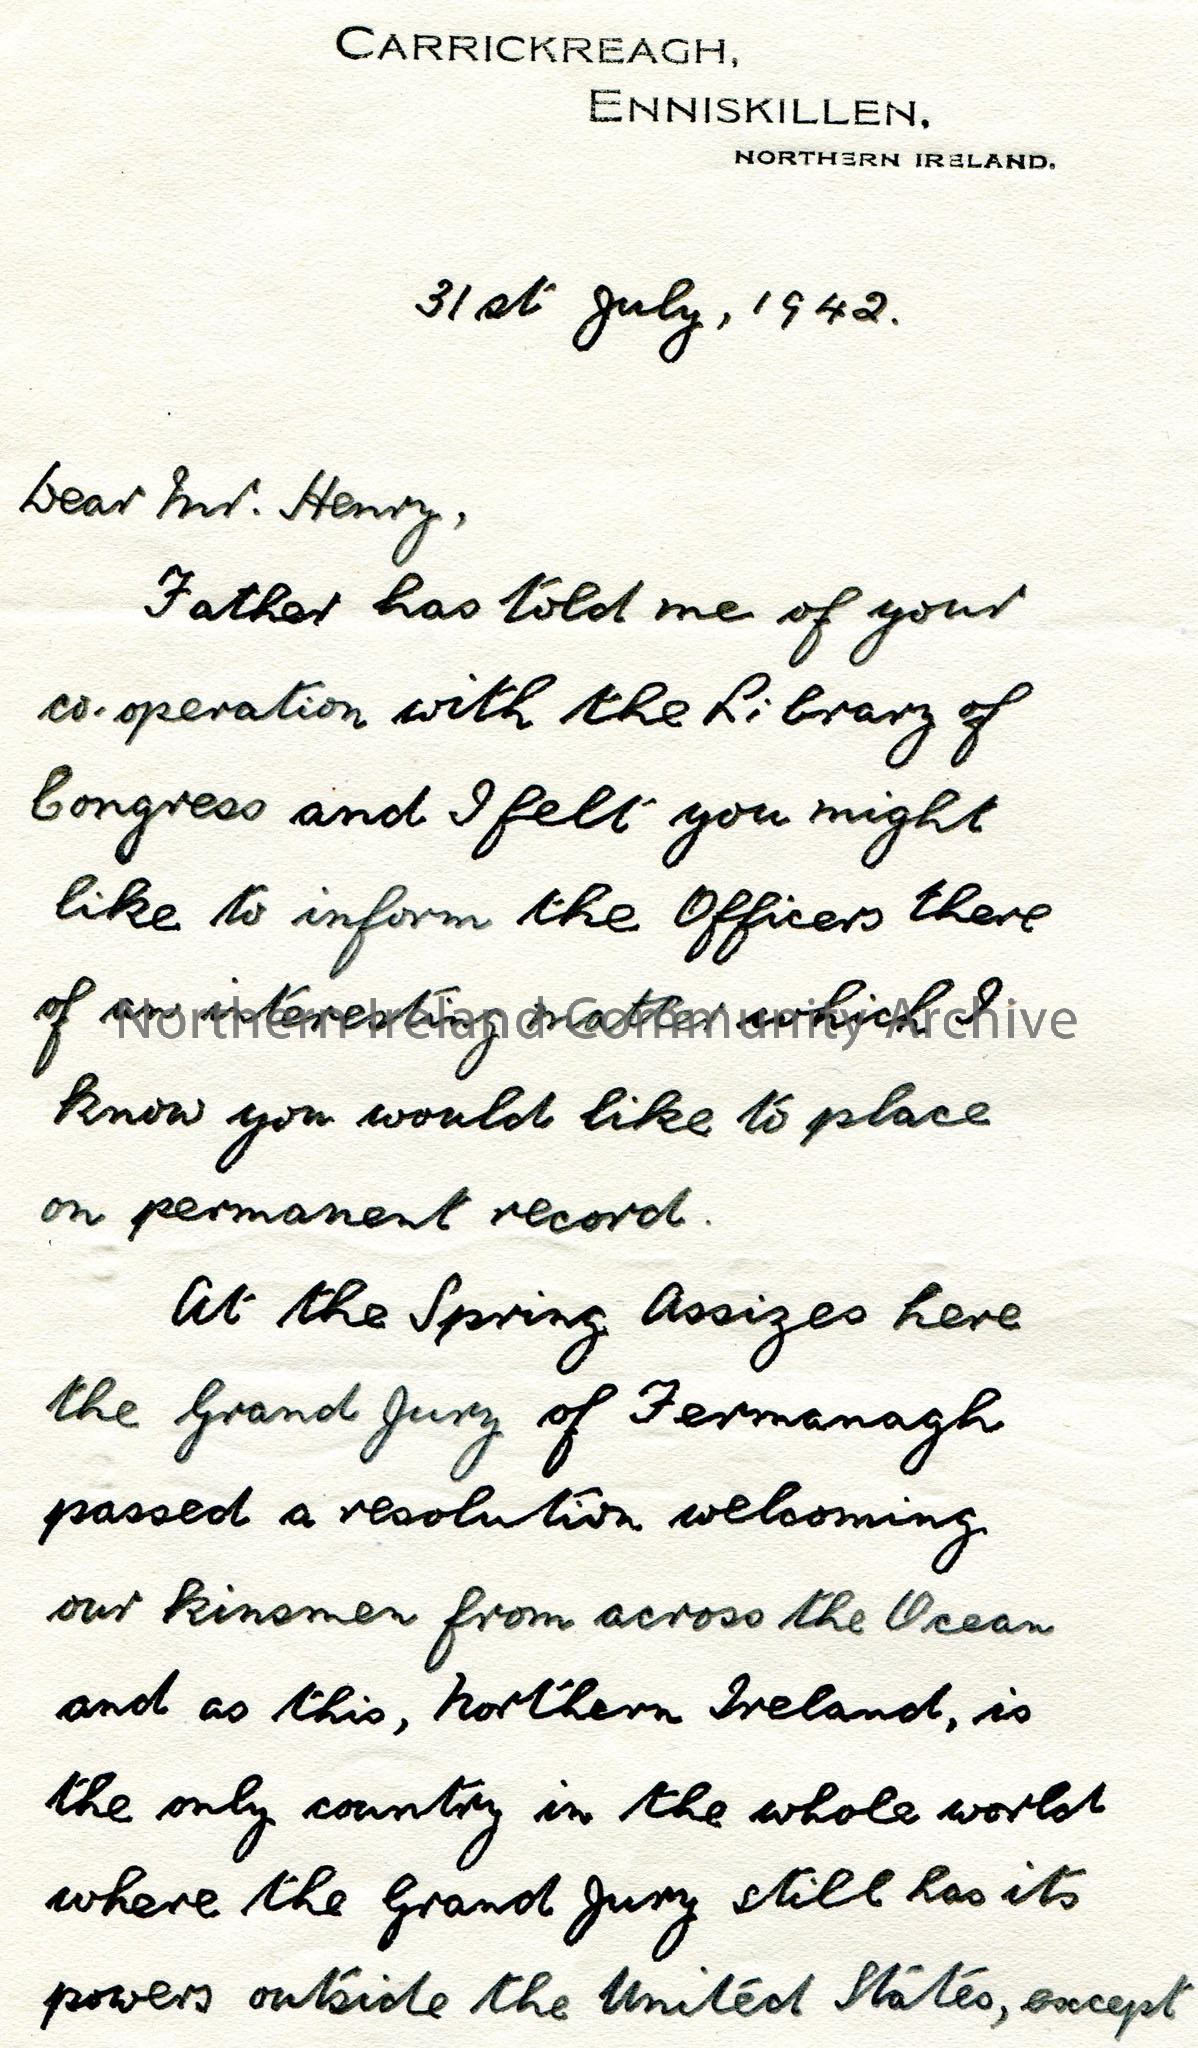 CARRICKREAGH,
ENNISKILLEN,
NORTHERN IRELAND.
31st July, 1942.
Dear Mr. Henry,
Father has told me of your
co-operation with the Library of
Congress and I felt you might
like to inform the Officers there
of an interesting matter which I
Northern Ireland Community Archive
know you would like to place
on permanent record.
At the Spring Assizes here
the Grand Jury of Fermanagh
passed a resolution welcoming
our kinsmen from across the Ocean
and as this, Northern Ireland, is
the only country in the whole world
where the Grand Jury still has its
powers outside the United States, except